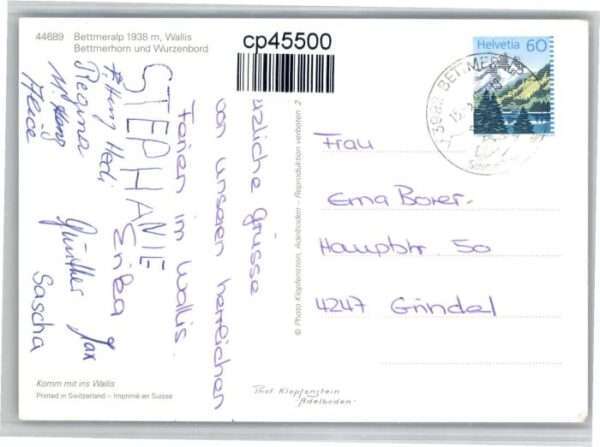 44689 Bettmeralp 1938 m, Wallis
Bettmerhorn und Wurzenbord
cp45500
Helvetia 60
zliche Grüsse
von unseren herrlichen
Ferien im Wallis.
STEPHANIE
Hedi Erika
Regina Günther
Sascha
Frau
Erna Borer
Hauptstr. 50
4247 Grindel
© Photo Klopfenstein, Adelboden - Reproduktion verboten 2
Komm mit ins Wallis
Printed in Switzerland – Imprimé en Suisse
Phot Klopfenstein
-Adelboden-